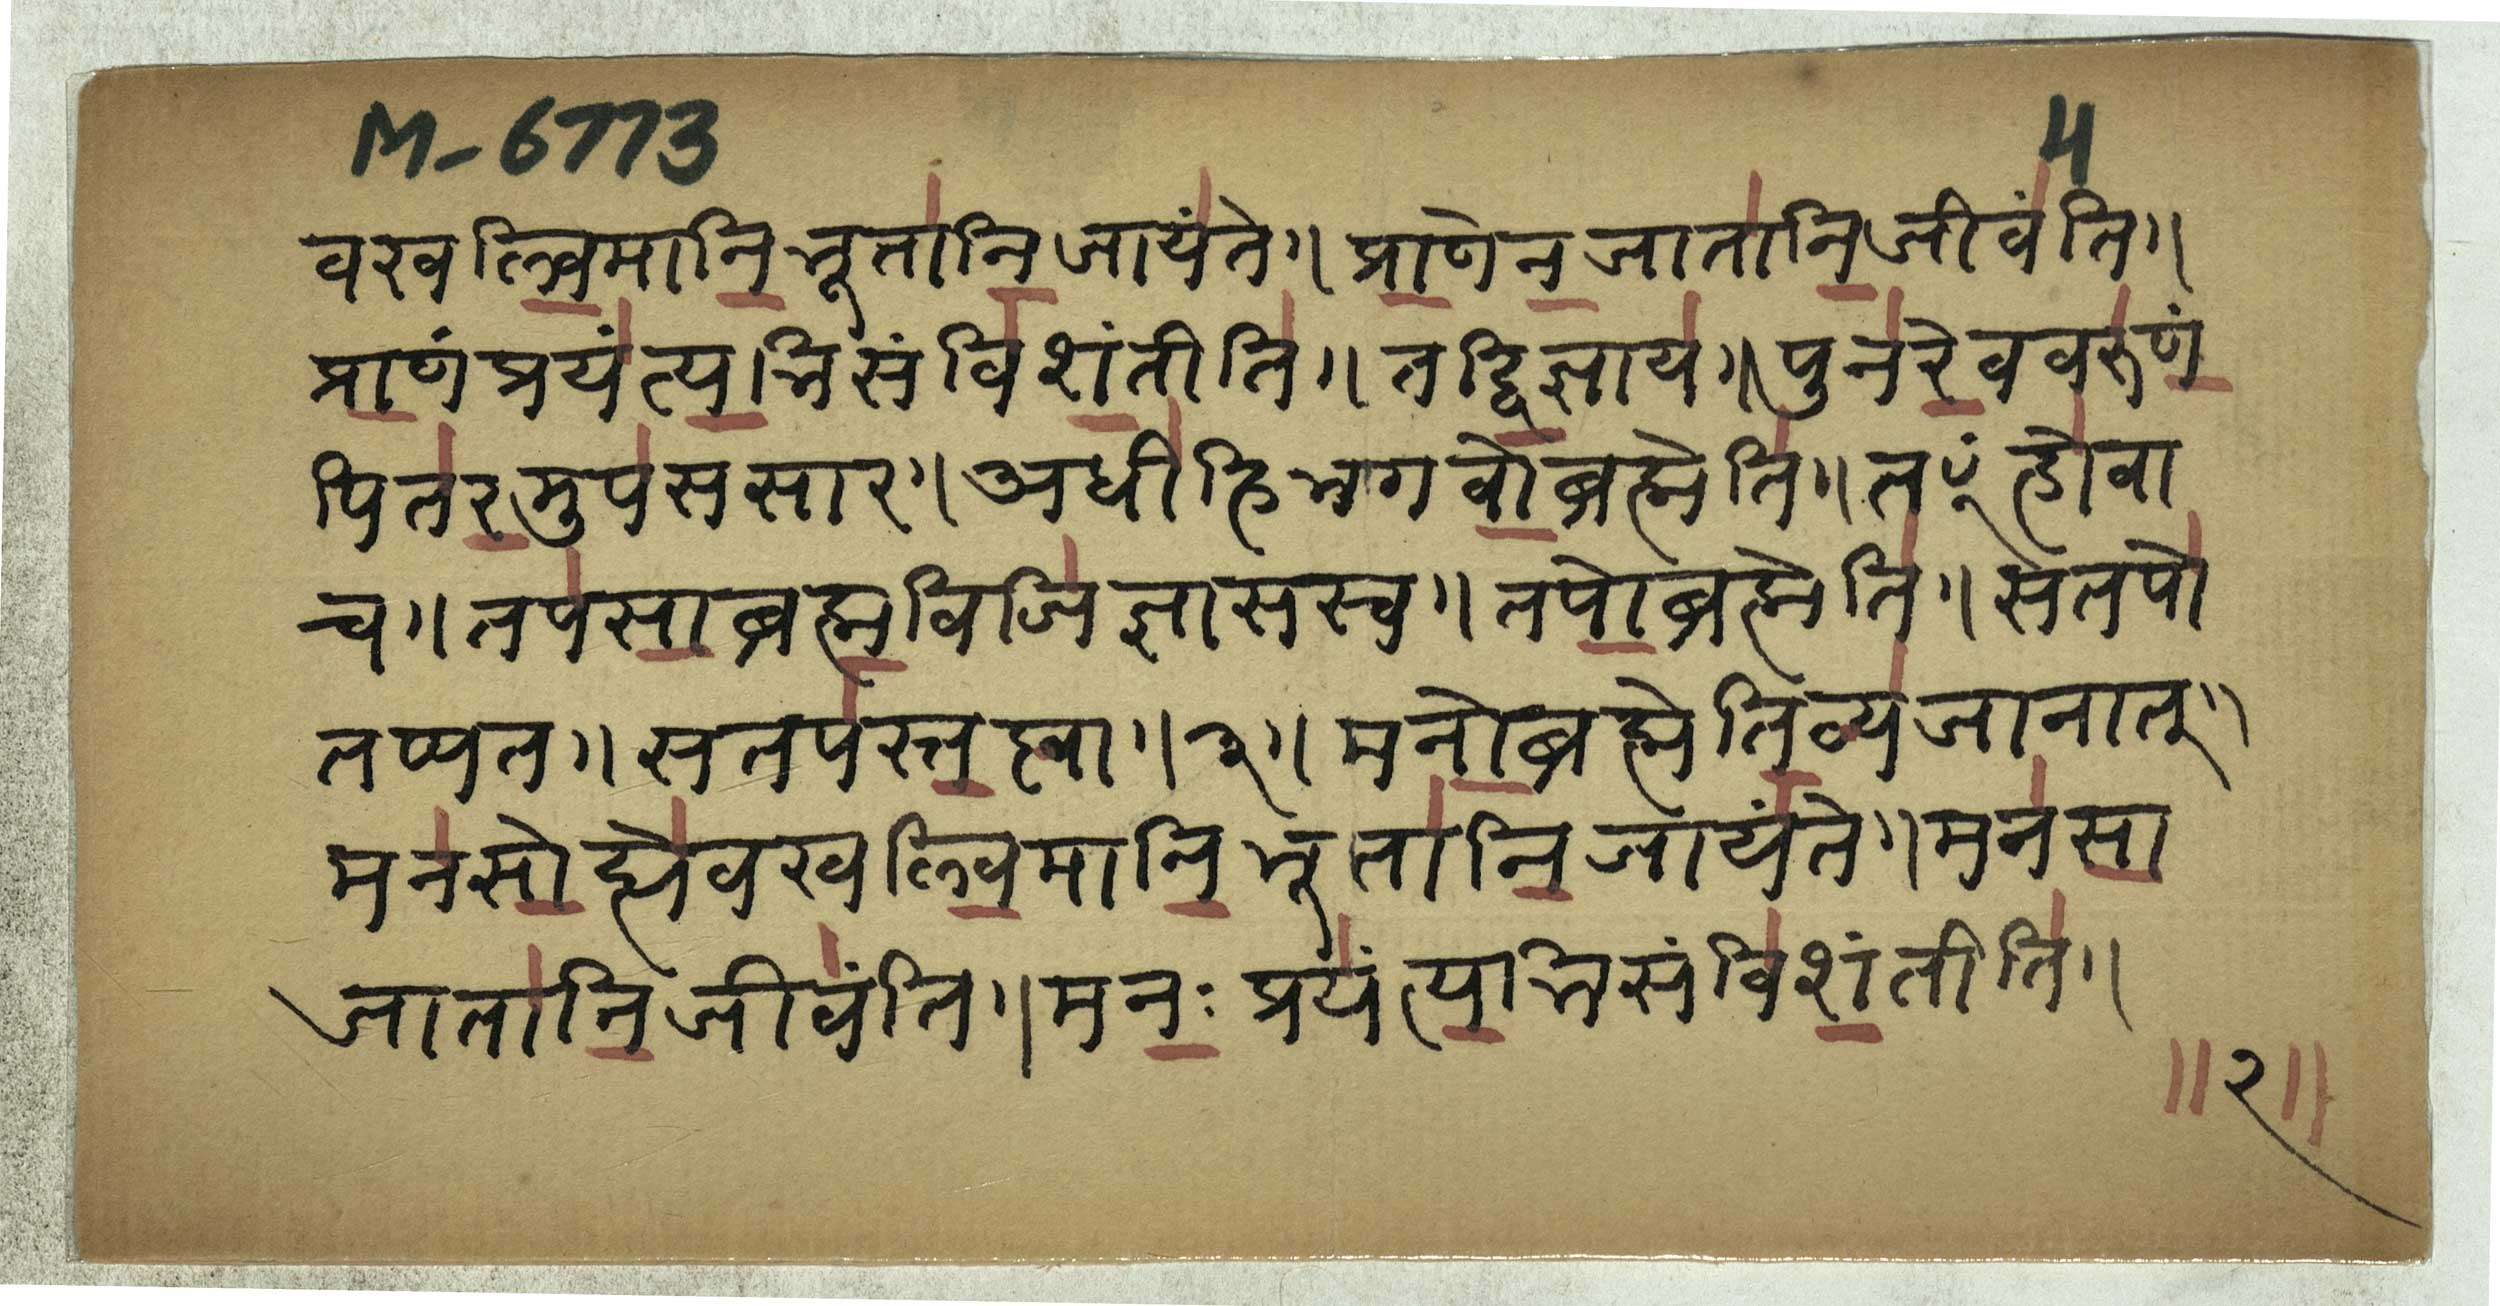 M-6773 ५
वखल्विमानिभूतानिजायंते॥प्राणेनजातानिजीवंति॥
प्राणंप्रयंत्यभिसंविशंतीति॥तद्विज्ञाय॥पुनरेववरुणं
पितरमुपससार॥अधीहिभगवोब्रह्मेति॥तꣳहोवा
च॥तपसाब्रह्मविजिज्ञासस्व॥तपोब्रह्मेति॥सतपो
तप्यत॥सतपस्तप्त्वा॥३॥मनोब्रह्मेतिव्यजानात्॥
मनसोह्येवखल्विमानिभूतानिजायंते॥मनसा
जातानिजीवंति॥मनःप्रयंत्यभिसंविशंतीति॥
॥२॥